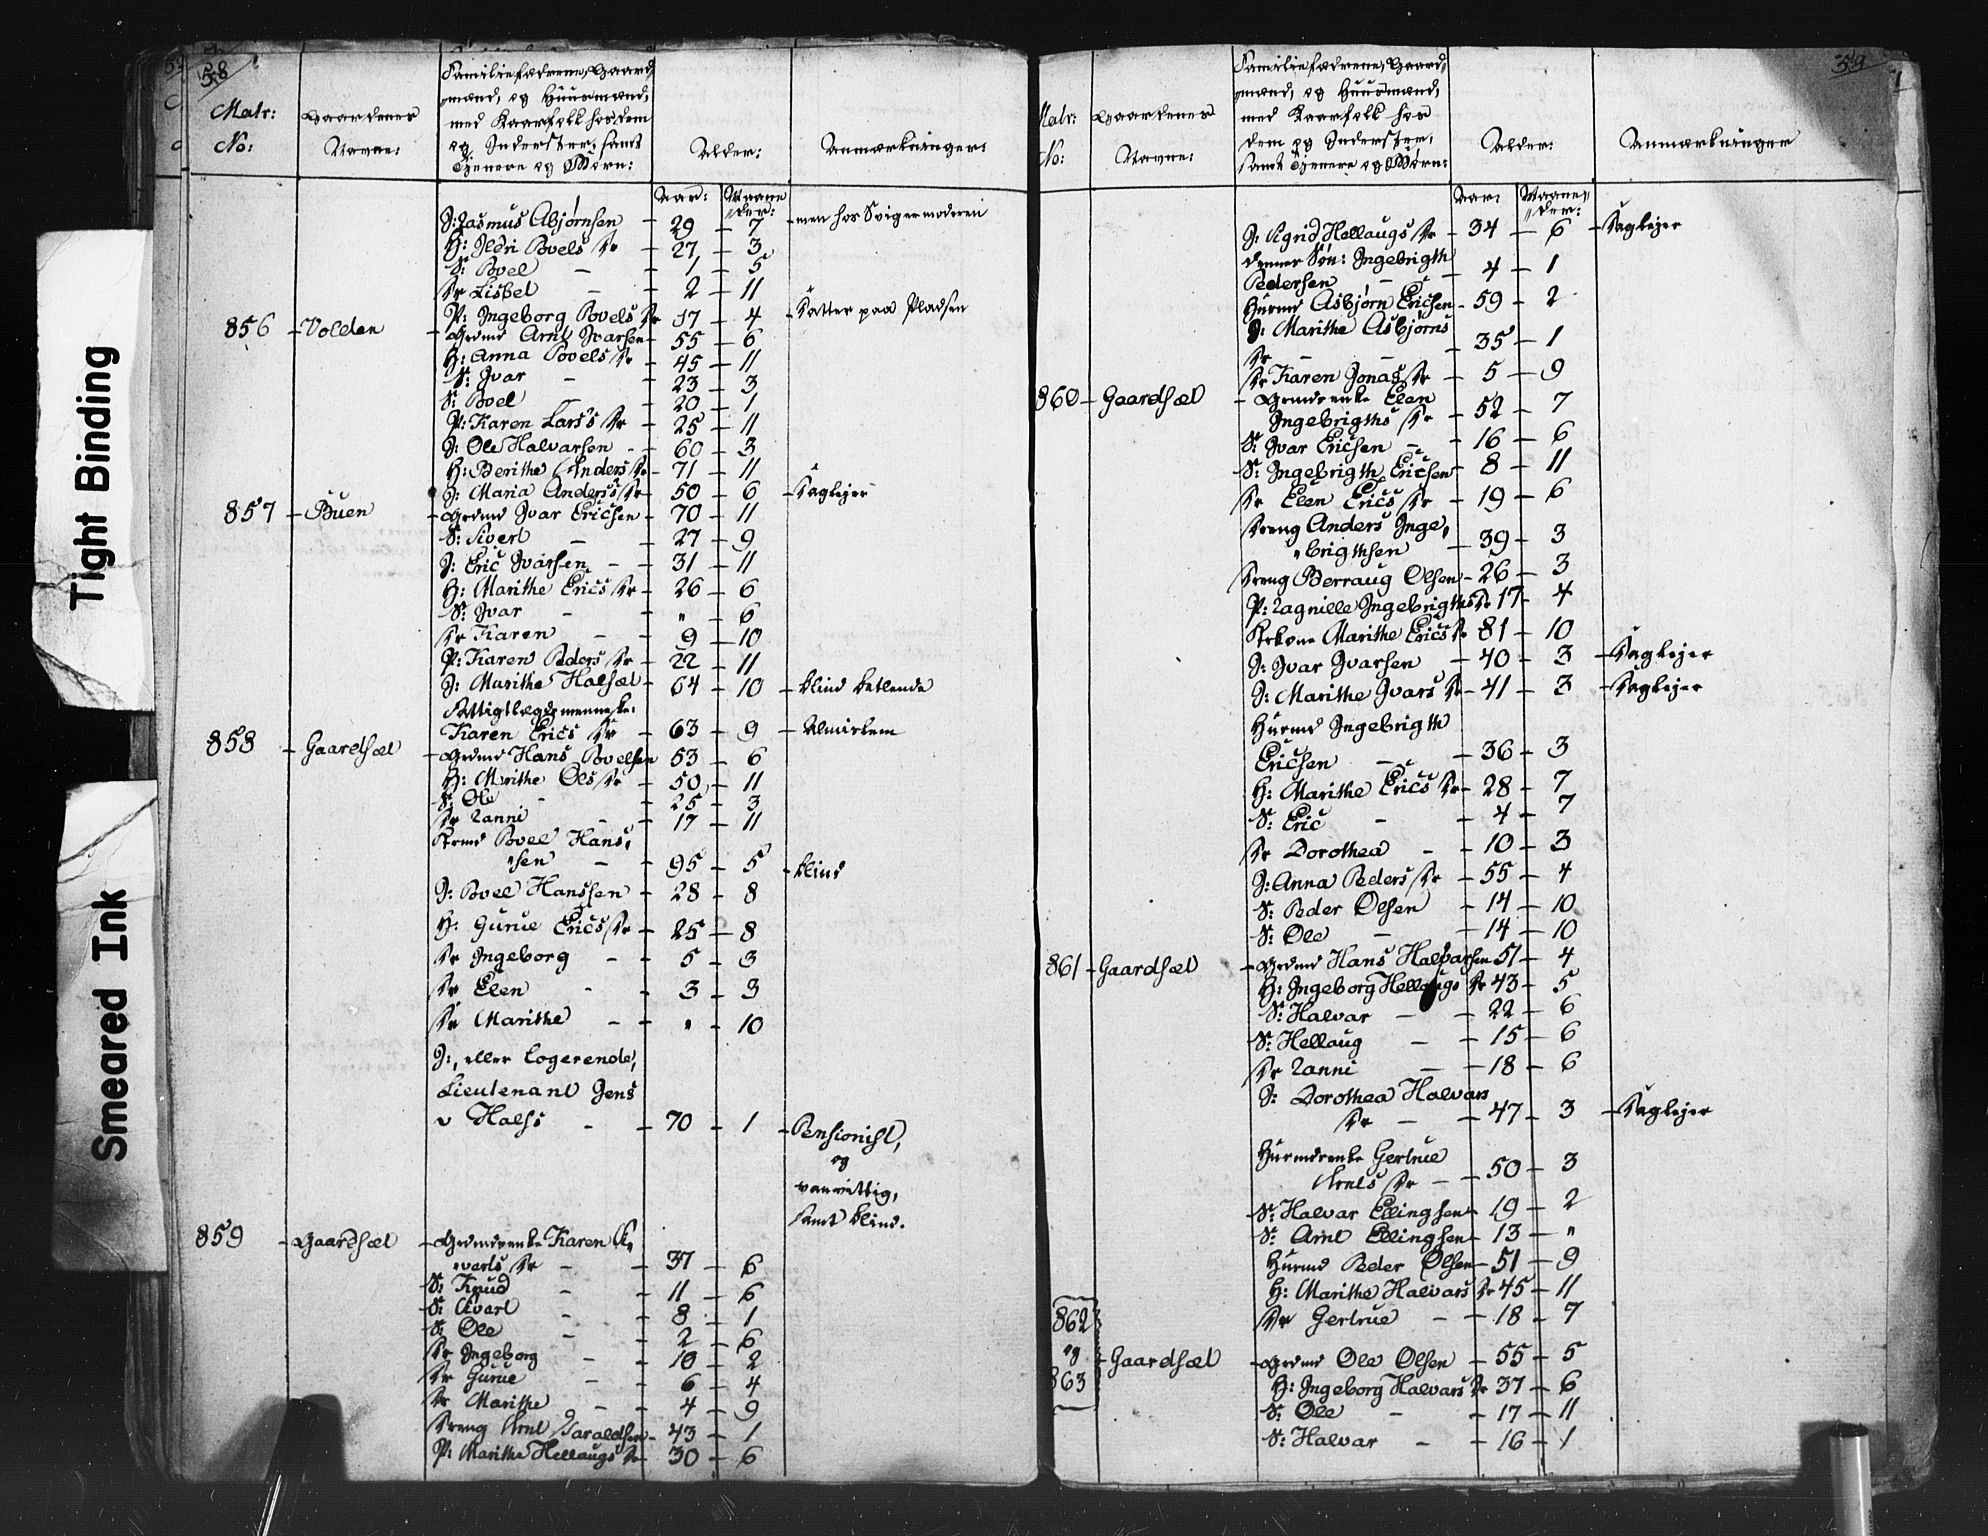 58
Matr: No:
Gaardenes Navne:
Familiefædrene, Gaard-
mænd, og Huusmænd,
med Kaarfolk hos dem
og Inderster, samt
Tjenere og Børn:
Alder:
Anmærkninger:
Aar: Maane
der:
I: Rasmus Abjørnsen - 29 - 7 - men hos Svigermoderen
H: Ildri Povels Dr - 27 - 3
S: Povel - 1 - 5
Dr Lisbet - 2 - 11
P: Ingeborg Povels Dr 17 - 4 - Datter paa Pladsen
856 - Volden - Grdmd Arnt Ivarsen - 55 - 6
H: Anna Povels Dr - 45 - 11
S: Ivar - 23 - 3
S: Povel - 20 - 1
P: Karen Lars's Dr - 25 - 11
I: Ole Halvarsen - 60 - 3
H: Berithe Anders Dr - 71 - 11
I: Maria Anders's Dr - 50 - 6 - Daglejer
857 - Buen - Grdmd Ivar Ericsen - 70 - 11
S: Sivert - 27 - 9
I: Eric Ivarsen - 31 - 11
H: Marithe Erics Dr - 26 - 6
S: Ivar - " - 6
Dr Karen - 9 - 10
P: Karen Peders Dr - 22 - 11
I: Marithe Halsæt - 64 - 10 - blind betlende
Fattiglægdsmenneske:
Karen Erics Dr - 63 - 9 - Almislem
858 - Gaardsæt - Grdmd Hans Povelsen 53 - 6
H: Marithe Ols Dr - 50 - 11
S: Ole - 25 - 3
Dr Ranni - 17 - 11
Krmd Povel Hans,
"sen - 95 - 5 - blind
I: Povel Hanssen - 28 - 8
H: Gurue Erics Dr - 25 - 8
Dr Ingeborg - 5 - 3
Dr Elen - 3 - 3
Dr Marithe - " - 10
I:, eller Logerende,
Lieutenant Jens
v Hals's - 70 - 1 - Pensionist,
og
vanvittig,
samt blind.
859 - Gaardsæt - Grdmdenke Karen Si,
"verts Dr - 37 - 6
S: Knud - 11 - 6
S: Sivert - 8 - 1
S: Ole - 2 - 6
Dr Ingeborg - 10 - 2
Dr Gurue - 6 - 4
Dr Marithe - 4 - 9
Dreng Arnt Haraldsen - 43 - 1
P: Marithe Hellaugs Dr 30 - 6
59
Matr: No:
Gaardenes Navne:
Familiefædrene, Gaard-
mænd, og Huusmænd,
med Kaarfolk hos
dem og Inderster,
samt Tjenere og Børn:
Alder:
Anmærkninger
Aar: Maane,
"der:
I: Sigrid Hellaugs Dr - 34 - 6 - Daglejer
dennes Søn: Ingebrigth
Pedersen - 4 - 1
Husmd Asbjørn Ericsen - 59 - 2
I: Marithe Asbjørns
Dr - 35 - 1
Dr Karen Jonas Dr - 5 - 9
860 - Gaardsæt - Grmdenke Elen
Ingebrigths Dr - 52 - 7
S: Ivar Ericsen - 16 - 6
S: Ingebrigth Ericsen - 8 - 11
Dr Elen Erics Dr - 19 - 6
Dreng Anders Inge,
"brigthsen - 39 - 3
Dreng Berraug Olsen - 26 - 3
P: Ragnille Ingebrigths Dr 17 - 4
Krkone Marithe Erics Dr 81 - 10
I: Ivar Ivarsen - 40 - 3 - Daglejer
I: Marithe Ivars Dr - 41 - 3 - Daglejer
Husmd Ingebrigth
Ericsen - 36 - 3
H: Marithe Erics Dr - 28 - 7
S: Eric - 4 - 7
Dr Dorothea - 10 - 3
I: Anna Peders Dr - 55 - 4
S: Peder Olsen - 14 - 10
S: Ole - 14 - 10
861 - Gaardsæt - Grdmd Hans Halvarsen 51 - 4
H: Ingeborg Hellaugs Dr 43 - 5
S: Halvar - 22 - 6
S: Hellaug - 15 - 6
Dr Ranni - 18 - 6
I: Dorothea Halvars
Dr - 47 - 3 - Daglejer
Husmdenke Gertrue
Arnts Dr - 50 - 3
S: Halvar Ellingsen - 19 - 2
S: Arnt Ellingsen - 13 - "
Husmd Peder Olsen - 51 - 9
H: Marithe Halvars Dr 45 - 11
Dr Gertrue - 18 - 7
862
og
863
- Gaardsæt - Grdmd Ole Olsen - 55 - 5
H: Ingeborg Halvars Dr 37 - 6
S: Ole - 17 - 11
S: Halvar - 16 - 1
Tight Binding
Smeared Ink